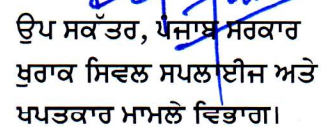 ਉਪ ਸਕੱਤਰ, ਪੰਜਾਬ ਸਰਕਾਰ
ਖੁਰਾਕ ਸਿਵਲ ਸਪਲਾਈਜ ਅਤੇ
ਖਪਤਕਾਰ ਮਾਮਲੇ ਵਿਭਾਗ।